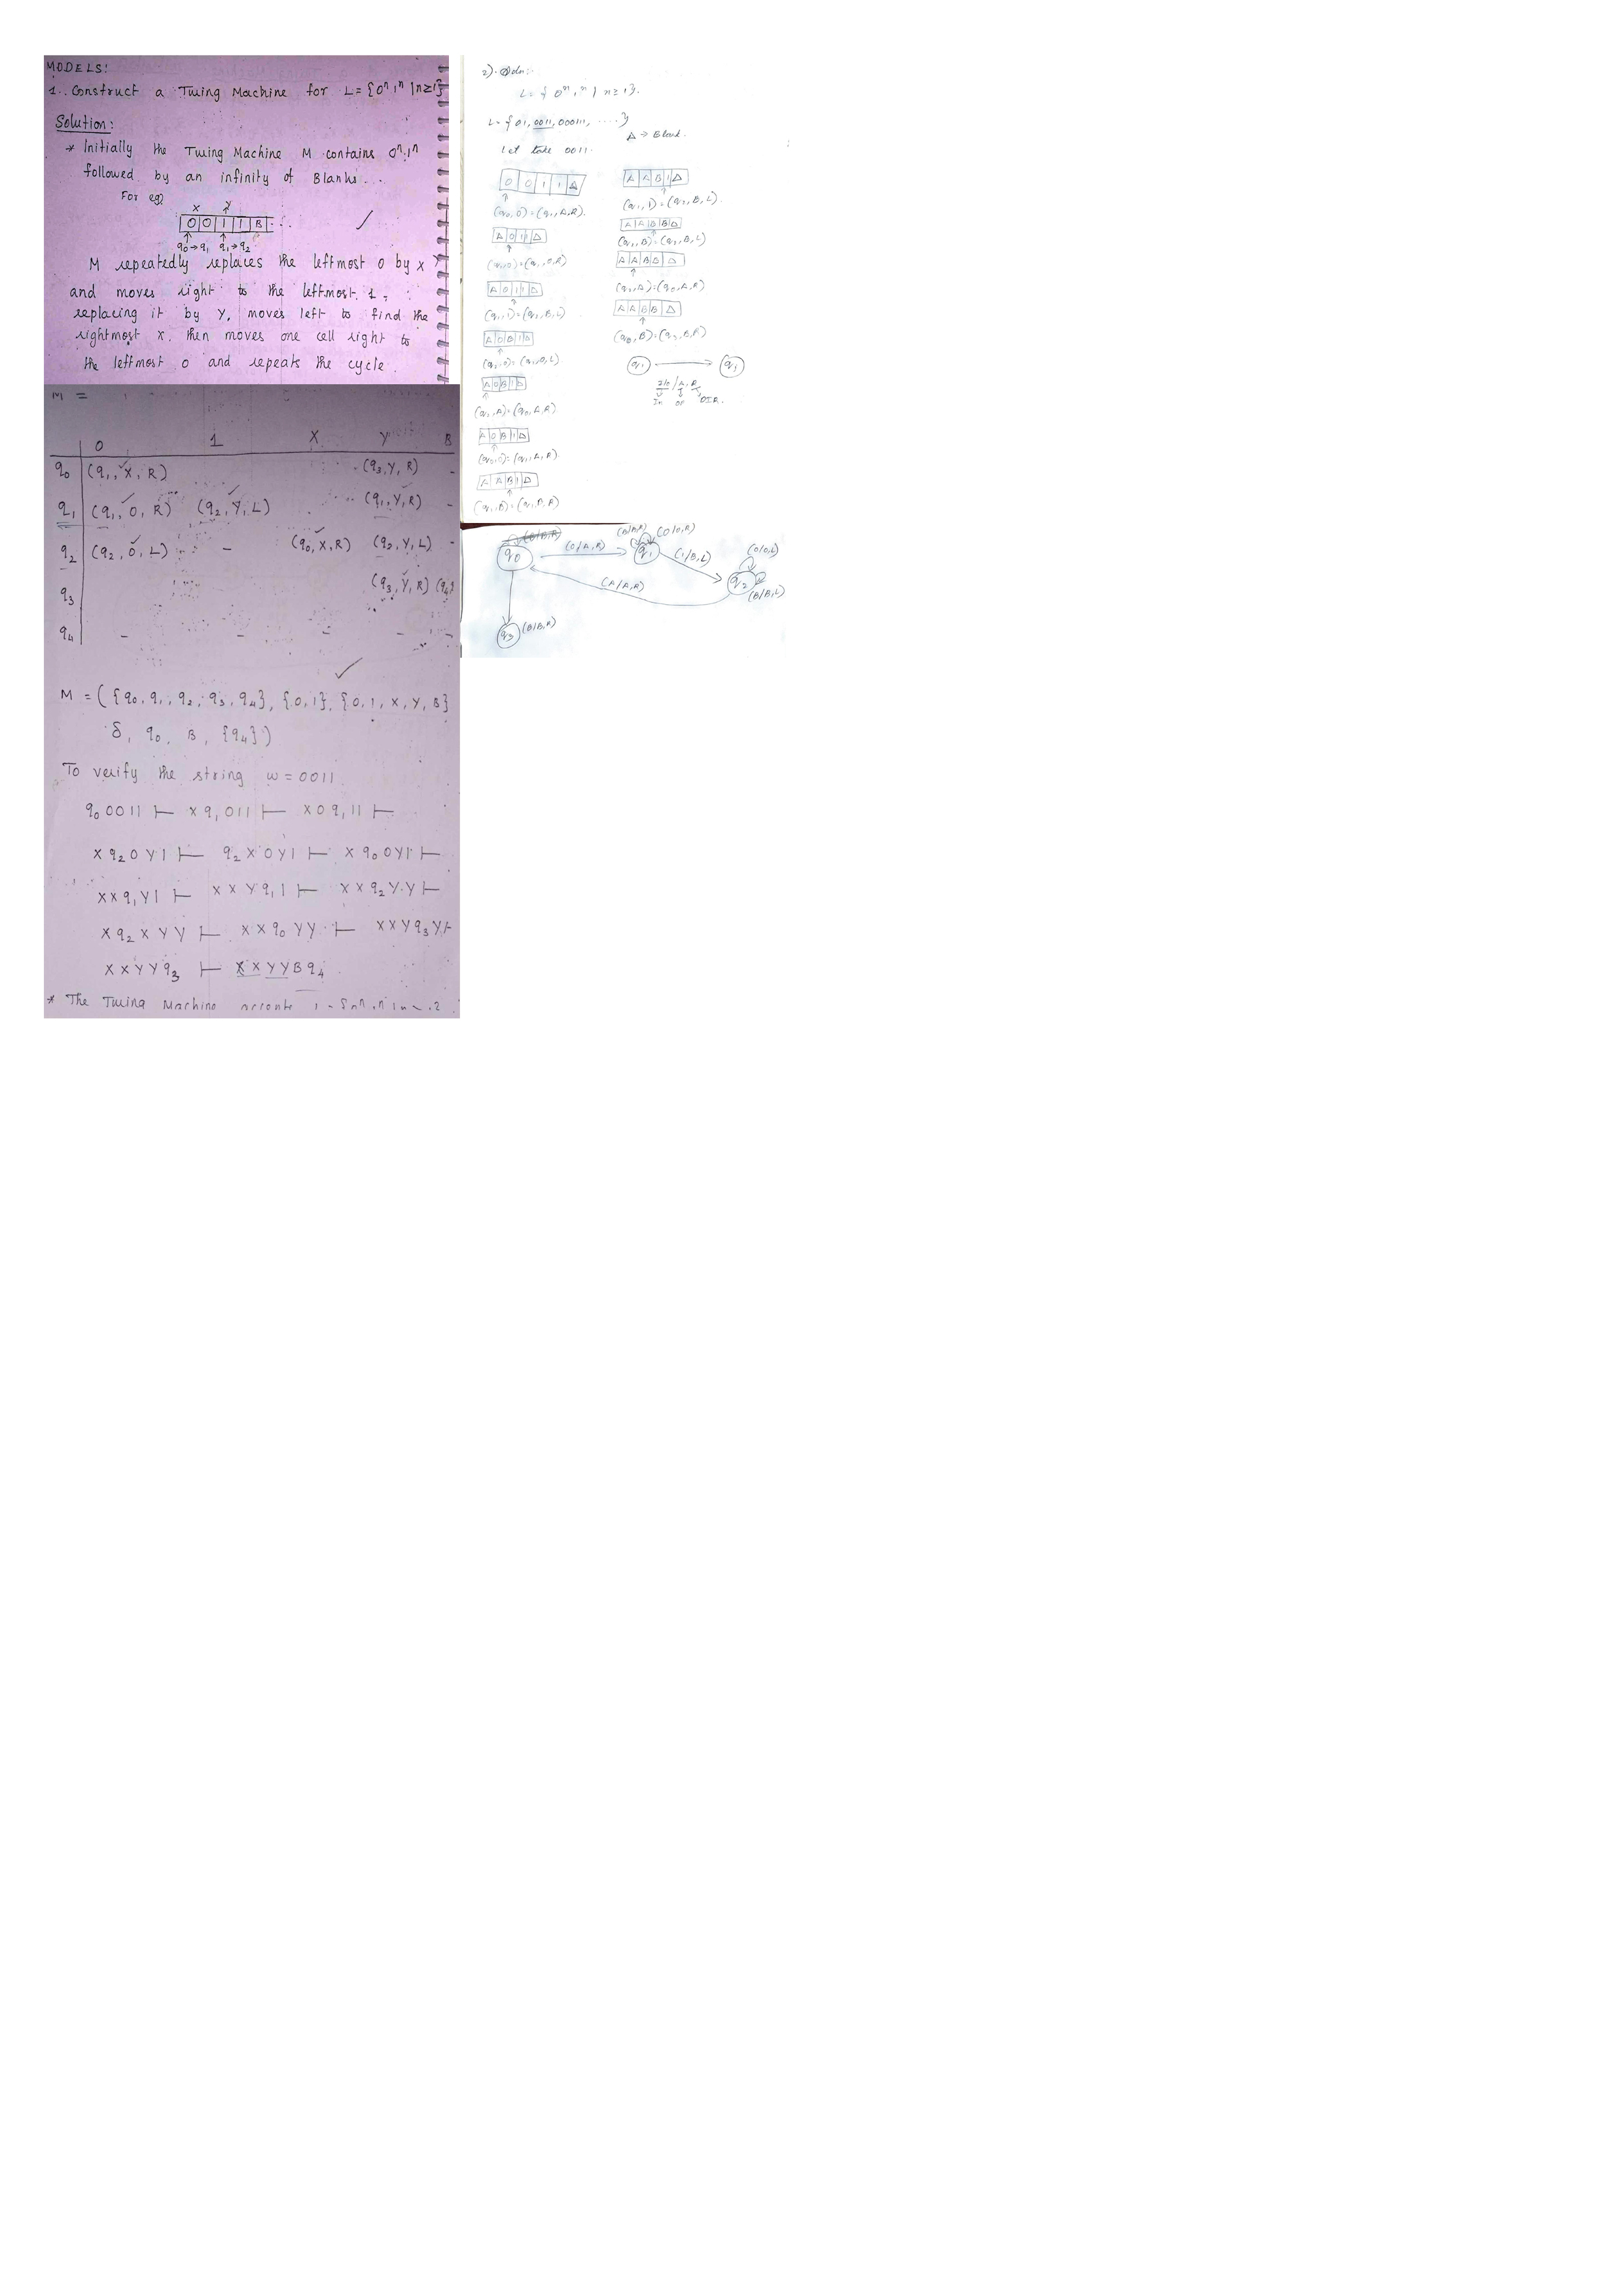 MODELS:
1. Construct a Turing Machine for L = {0ⁿ1ⁿ | n≥1}
Solution:
* Initially the Turing Machine M contains 0ⁿ1ⁿ
followed by an infinity of Blanks...
For eg)
X Y
0 0 1 1 B
q0→q1 q1→q2
M repeatedly replaces the leftmost 0 by x
and moves right to the leftmost 1,
replacing it by Y, moves left to find the
rightmost X, then moves one cell right to
the leftmost 0 and repeats the cycle.
M =
0 1 X Y B
q0 (q1, X, R) (q3, Y, R) -
q1 (q1, 0, R) (q2, Y, L) (q1, Y, R) -
q2 (q2, 0, L) - (q0, X, R) (q2, Y, L) -
q3 (q3, Y, R) (q4
q4 - - - - -
M = ({q0, q1, q2, q3, q4}, {0, 1}, {0, 1, X, Y, B}
δ, q0, B, {q4})
To verify the string w = 0011
q0 0011 ⊢ X q1 011 ⊢ X 0 q1 11 ⊢
X q2 0 Y 1 ⊢ q2 X 0 Y 1 ⊢ X q0 0 Y 1 ⊢
X X q1 Y 1 ⊢ X X Y q1 1 ⊢ X X q2 Y Y ⊢
X q2 X Y Y ⊢ X X q0 Y Y ⊢ X X Y q3 Y ⊢
X X Y Y q3 ⊢ X X Y Y B q4
* The Turing Machine accepts
2). Soln:-
L = { 0ⁿ 1ⁿ | n ≥ 1}.
L = {01, 0011, 000111, ..... }
Δ → Blank.
Let take 0011.
0 0 1 1 Δ
(q0, 0) = (q1, A, R).
A 0 1 1 Δ
(q1, 0) = (q1, 0, R)
A 0 1 1 Δ
(q1, 1) = (q2, B, L)
A 0 B 1 Δ
(q2, 0) = (q2, 0, L)
A 0 B 1 Δ
(q2, A) = (q0, A, R)
A 0 B 1 Δ
(q0, 0) = (q1, A, R)
A A B 1 Δ
(q1, B) = (q1, B, R)
A A B 1 Δ
(q1, 1) = (q2, B, L)
A A B B Δ
(q2, B) = (q2, B, L)
A A B B Δ
(q2, A) = (q0, A, R)
A A B B Δ
(q0, B) = (q3, B, R)
In DIR.
(B/B,R) (0/0,R)
q0 (0/A, R) q1 (1/B, L) (0/0, L)
(A/A, R) q2
(B/B, L)
q3 (B/B, R)